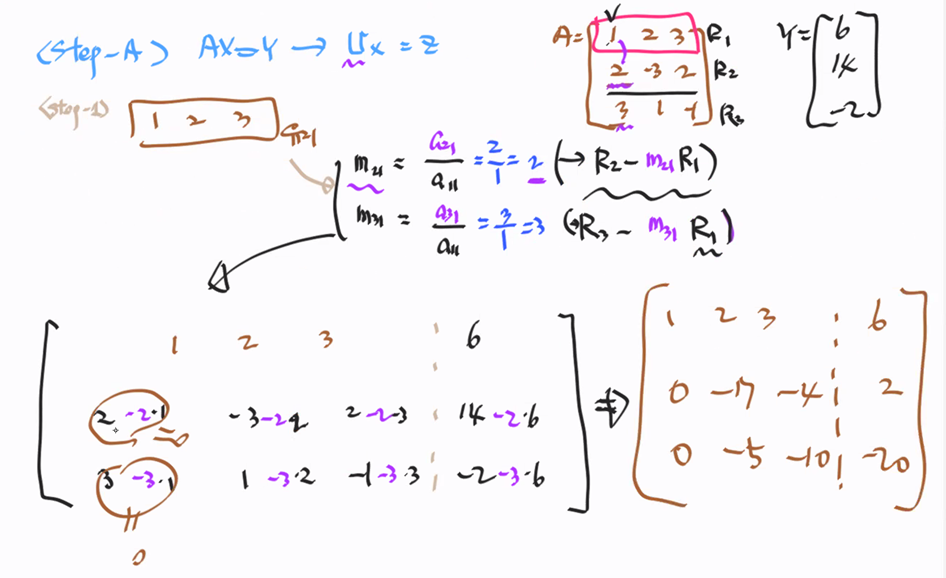 <Step-A) AX=Y → Ux = Z
A= 1 2 3 R1
2 -3 2 R2
3 1 -1 R3
Y= 6
14
-2
<Step-1)
1 2 3
m21 = a21/a11 = 2/1 = 2 (→ R2 - m21 R1)
m31 = a31/a11 = 3/1 = 3 (→ R3 - m31 R1)
1 2 3 6
2 -2·1 -3-2·2 2-2·3 14-2·6
=0
3 -3·1 1-3·2 -1-3·3 -2-3·6
= 0
⇒
1 2 3 6
0 -7 -4 2
0 -5 -10 -20